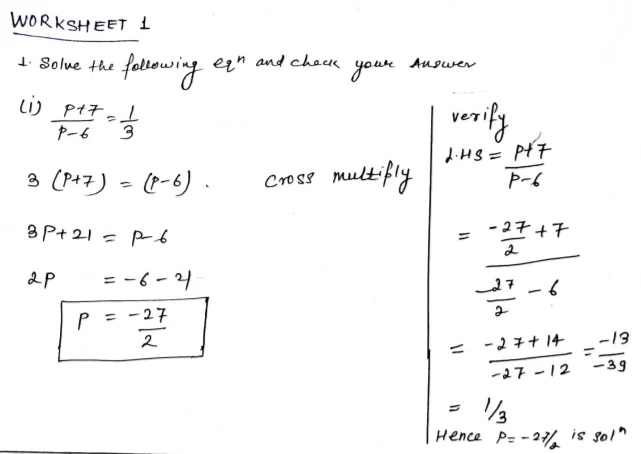 WORKSHEET 1
1. Solve the following eqn and check your Answer
(i) P+7/P-6 = 1/3
3 (P+7) = (P-6). cross multiply
3P+21 = P-6
2P = -6-21
P = -27/2
verify
L.HS = P+7/P-6
= (-27/2 + 7)/(-27/2 - 6)
= -27+14/-27-12 = -13/-39
= 1/3
Hence P= -27/2 is soln